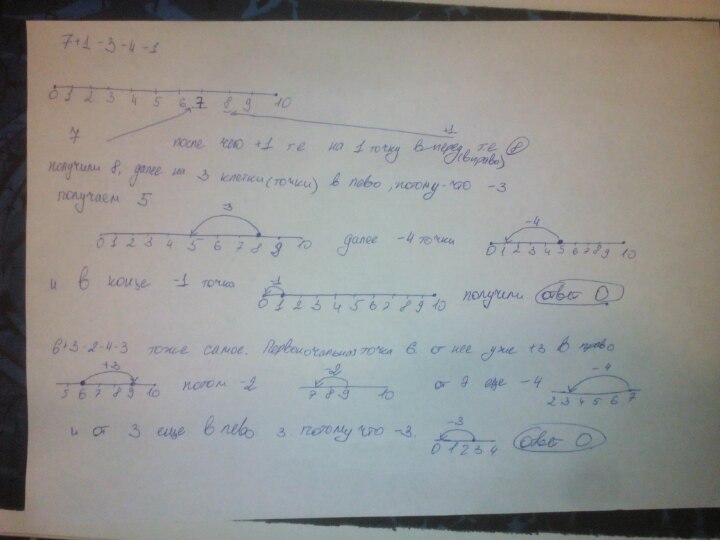 7+1-3-4-1
0 1 2 3 4 5 6 7 8 9 10
+1
7 после чего +1 т.е на 1 точку в перед т.е 8
(вправо)
получили 8, далее на 3 клетки (точки) в лево, потому-что -3
получаем 5
-3
0 1 2 3 4 5 6 7 8 9 10
далее -4 точки
-4
0 1 2 3 4 5 6 7 8 9 10
и в конце -1 точка
-1
0 1 2 3 4 5 6 7 8 9 10
получили ответ 0
6+3-2-4-3 тоже самое. Первоначальная точка 6 от нее уже +3 в право
+3
5 6 7 8 9 10
потом -2
-2
7 8 9 10
от 7 еще -4
-4
2 3 4 5 6 7
и от 3 еще в лево 3 потому что -3.
-3
0 1 2 3 4
ответ 0